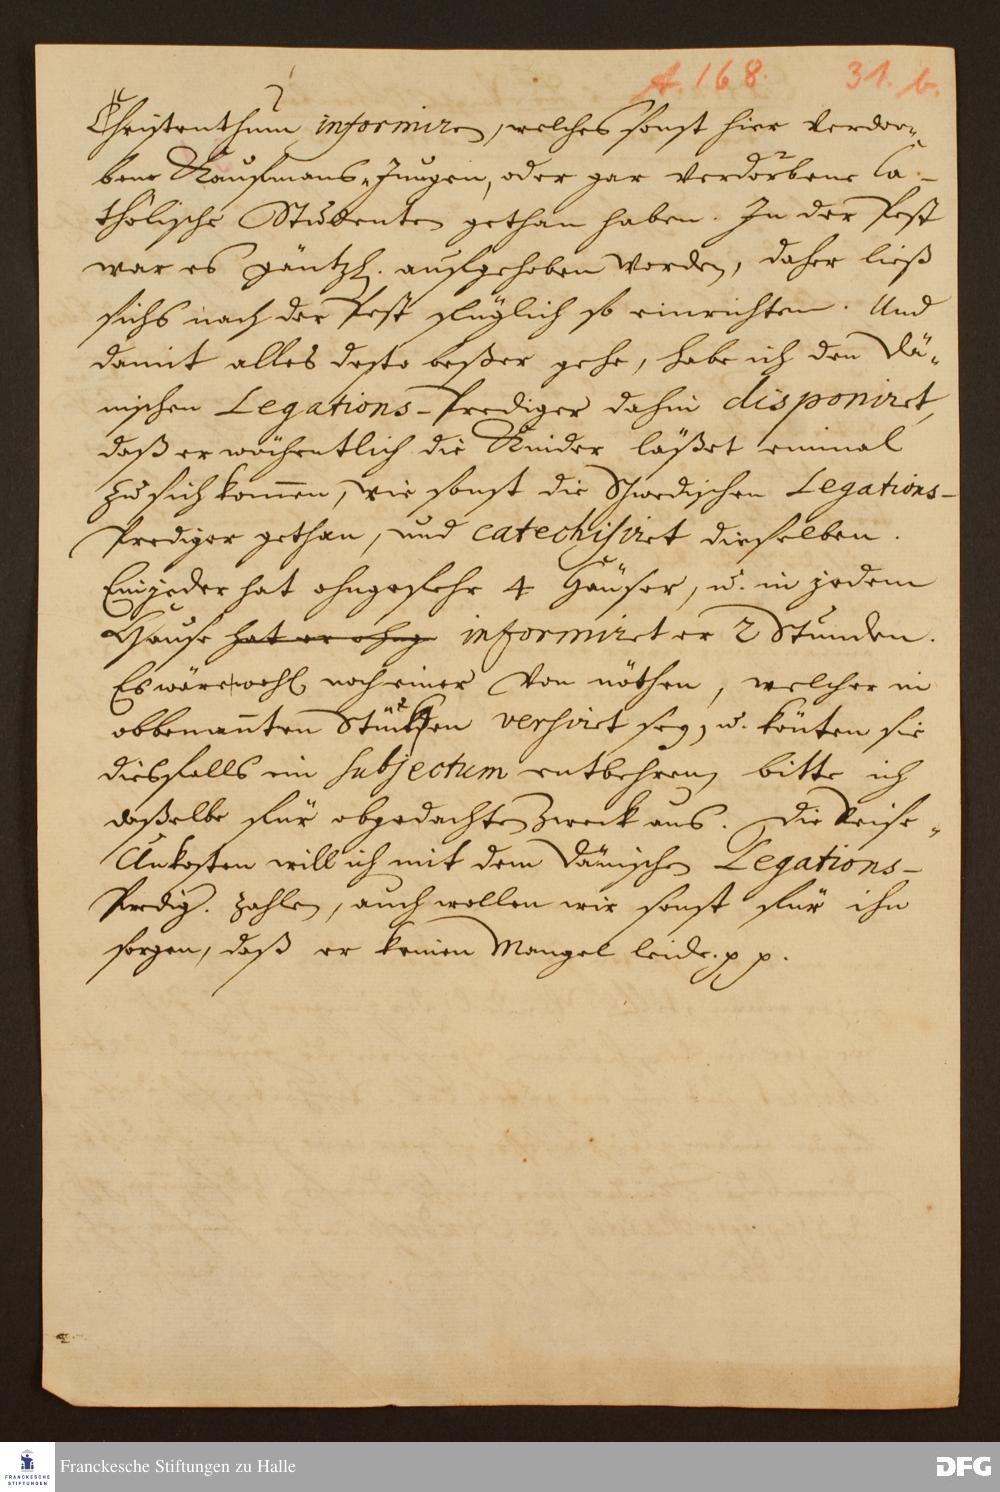 A. 168. 31. b.
Christenthum informiren, welches sonst hier verdor-
bene Kaufmans-Jungen, oder gar verdorbene Ca-
tholische Studenten gethan haben. In der Pest
war es gäntzl. aufgehoben worden, daher ließ
sichs nach der Pest füglich so einrichten. Und
damit alles desto beßer gehe, habe ich den Dä-
nischen Legations-Prediger dahin disponiret,
daß er wöchentlich die Kinder läßet einmal
zu sich kommen, wie sonst die Schwedischen Legations-
Prediger gethan, und catechisiret dieselben.
Ein jeder hat ohngefehr 4 Häuser, u. in jedem
Hause hat er ohng informiret er 2 Stunden.
Es wäre wohl noch einer von nöthen, welcher in
obbenannten Stücken versiret sey, u. könten sie
diesfalls ein subjectum entbehren, bitte ich
daßelbe für obgedachten Zweck aus. Die Reise-
Unkosten will ich mit dem Dänischen Legations-
Predig. zahlen, auch wollen wir sonst für ihn
sorgen, daß er keinen Mangel leide. p p.
Franckesche Stiftungen zu Halle
DFG
FRANCKESCHE
STIFTUNGEN